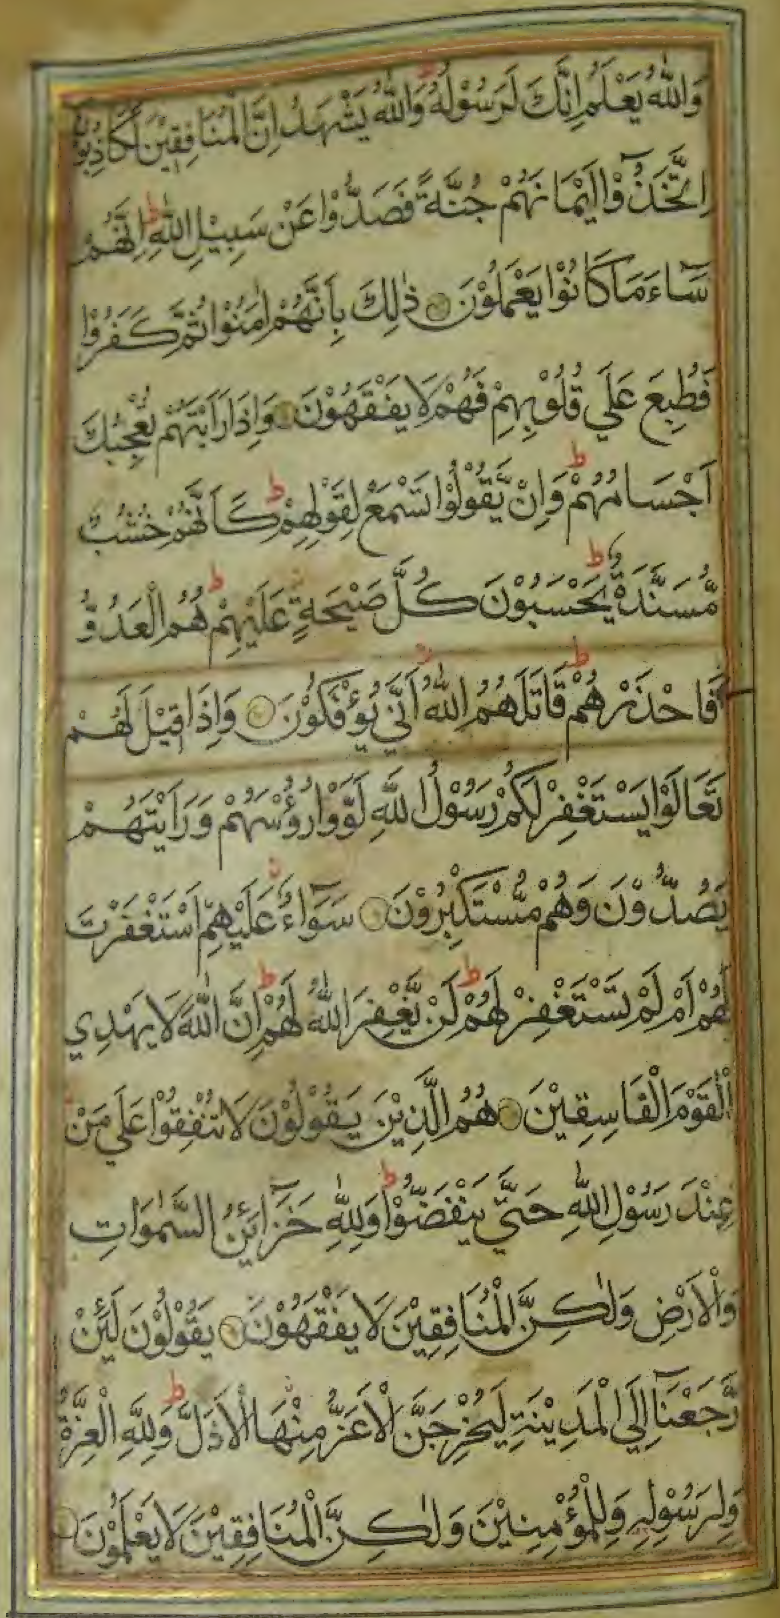 وَاللّٰهُ يَعْلَمُ اِنَّكَ لَرَسُوْلُهُ وَاللّٰهُ يَشْهَدُ اِنَّ الْمُنَافِقِيْنَ لَكَاذِبُوْنَ
اِتَّخَذُوْٓا اَيْمَانَهُمْ جُنَّةً فَصَدُّوْا عَنْ سَبِيْلِ اللّٰهِ ط اِنَّهُمْ
سَآءَ مَا كَانُوْا يَعْمَلُوْنَ ذٰلِكَ بِاَنَّهُمْ اٰمَنُوْا ثُمَّ كَفَرُوْا
فَطُبِعَ عَلَي قُلُوْبِهِمْ فَهُمْ لَا يَفْقَهُوْنَ وَاِذَا رَاَيْتَهُمْ تُعْجِبُكَ
اَجْسَامُهُمْ ط وَاِنْ يَّقُوْلُوْا تَسْمَعْ لِقَوْلِهِمْ ط كَاَنَّهُمْ خُشُبٌ
مُّسَنَّدَةٌ ط يَحْسَبُوْنَ كُلَّ صَيْحَةٍ عَلَيْهِمْ ط هُمُ الْعَدُوُّ
فَاحْذَرْهُمْ ط قَاتَلَهُمُ اللّٰهُ اَنّٰي يُؤْفَكُوْنَ وَاِذَا قِيْلَ لَهُمْ
تَعَالَوْا يَسْتَغْفِرْ لَكُمْ رَسُوْلُ اللّٰهِ لَوَّوْا رُؤُسَهُمْ وَرَاَيْتَهُمْ
يَصُدُّوْنَ وَهُمْ مُّسْتَكْبِرُوْنَ سَوَآءٌ عَلَيْهِمْ اَسْتَغْفَرْتَ
لَهُمْ اَمْ لَمْ تَسْتَغْفِرْ لَهُمْ ط لَنْ يَّغْفِرَ اللّٰهُ لَهُمْ ط اِنَّ اللّٰهَ لَا يَهْدِي
الْقَوْمَ الْفَاسِقِيْنَ هُمُ الَّذِيْنَ يَقُوْلُوْنَ لَا تُنْفِقُوْا عَلَي مَنْ
عِنْدَ رَسُوْلِ اللّٰهِ حَتّٰي يَنْفَضُّوْا ط وَلِلّٰهِ خَزَآئِنُ السَّمٰوَاتِ
وَالْاَرْضِ وَلٰكِنَّ الْمُنَافِقِيْنَ لَا يَفْقَهُوْنَ يَقُوْلُوْنَ لَئِنْ
رَّجَعْنَآ اِلَي الْمَدِيْنَةِ لَيُخْرِجَنَّ الْاَعَزُّ مِنْهَا الْاَذَلَّ ط وَلِلّٰهِ الْعِزَّةُ
وَلِرَسُوْلِهِ وَلِلْمُؤْمِنِيْنَ وَلٰكِنَّ الْمُنَافِقِيْنَ لَا يَعْلَمُوْنَ